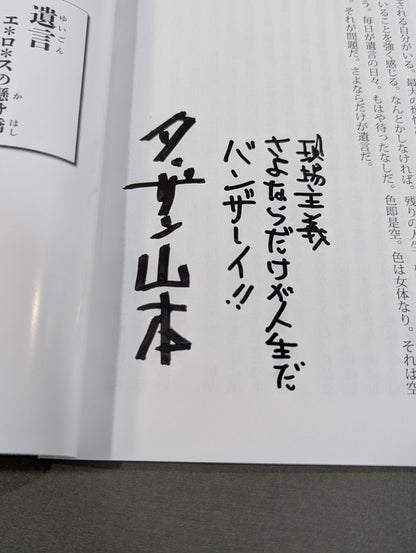 される自分がいる。最大
いることを強く感じる。なんとかしなければ。残りの人生
う。毎日が遺言の日々。もはや待ったなしだ。色即是空。色は女体なり。それは空
。それが問題だ。さよならだけが遺言だ。
現場主義
さよならだけが人生だ
バンザーイ!!
ターザン山本
遺言
ゆいごん
エ*ロ*スの懸け橋
か はし